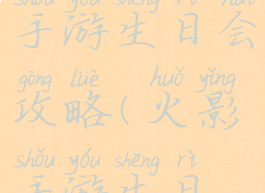 shǒu yóu shēng rì huì
手游生日会
gōng lüè huǒ yǐng
攻略(火影
shǒu yóu shēng rì
手游生日